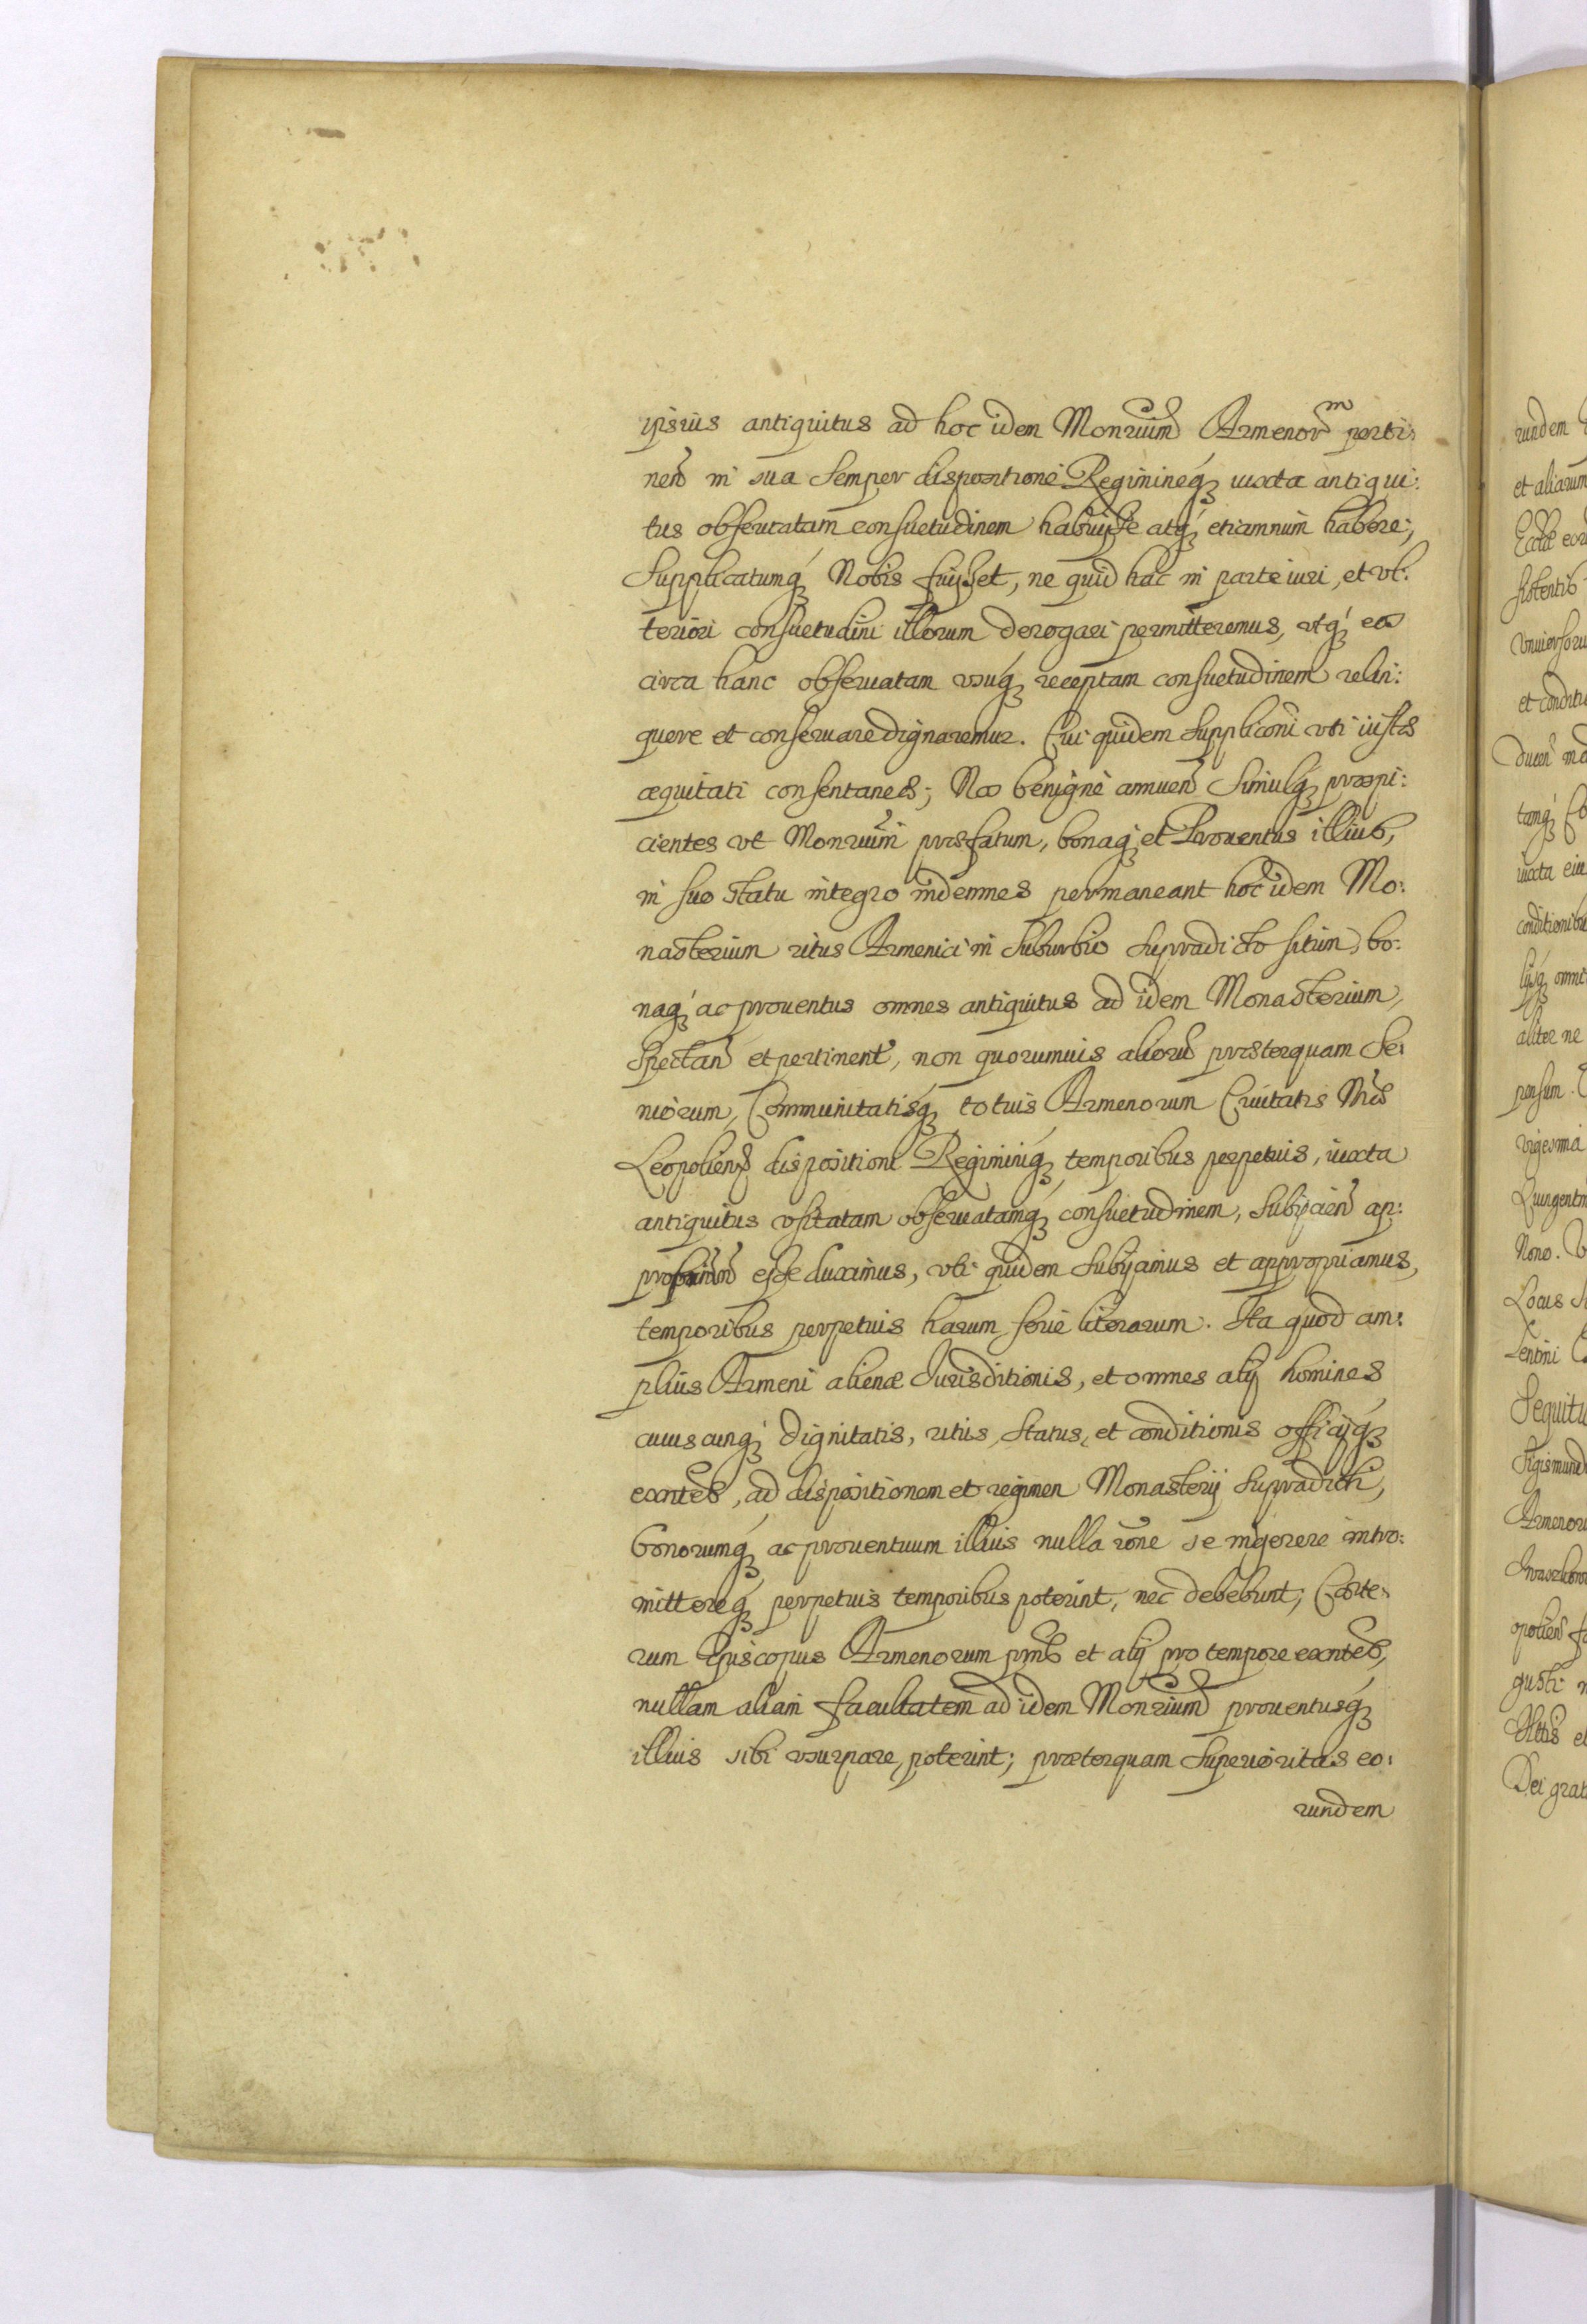 ipsius antiquitus ad hoc idem Monrium Armenorum perti:
nen in sua semper dispositione Regimineq iuxta antiqui:
tus obseruatam consuetudinem habuisse atq etiamnum habere;
Supplicatumq Nobis fuisset, ne quid hac in parte iuri, et vl:
teriori consuetudini illorum derogari permitteremus, vtq eos
circa hanc obseruatam vsuq receptam consuetudinem relin:
quere et conseruare dignaremur. Cui quidem suppliconi vti iustæ
æquitati consentaneæ; Nos benigne annuen Simulq prospi:
cientes vt Monrium præfatum, bonaq et Prouentus illius,
in suo statu integro indemnes permaneant hoc idem Mo:
nasterium ritus Armenici in suburbio supradicto situm, bo:
naq ac prouentus omnes antiquitus ad idem Monasterium,
spectan et pertinent, non quorumuis alioru præterquam Se:
niorum, Communitatisq totuis Armenorum Ciuitatis Nræ
Leopolien dispositioni Regiminiq temporibus perpetuis, iuxta
antiquitus vsitatam obseruatamq consuetudinem, subijcien ap:
proprian esse duximus, vti quidem subijcimus et appropriamus,
temporibus perpetuis harum serie literarum. Ita quod am:
plius Armeni alienæ Jurisditionis, et omnes alij homines
cuiuscunq dignitatis, ritus, status, et conditionis officijq
exntes, ad dispositionem et regimen Monasterij supradicti,
bonorumq ac prouentuum illius nulla rone se ingerere intro:
mittereq perpetuis temporibus poterint, nec debebunt; Cæte:
rum Episcopus Armenorum pnns et alij pro tempore exntes,
nullam aliam facultatem ad idem Monrium prouentusq
illius sibi vsurpare poterint; præterquam superioritas eo:
rundem
rundem
et aliarum
sistentib
et conditi
iuxta eiu
conditionibu
aliter ne
pensum.
vigesima
Nono.
Locus
Sequitu
Sigismund
Armenoru
opolien
gusti
Dei grat